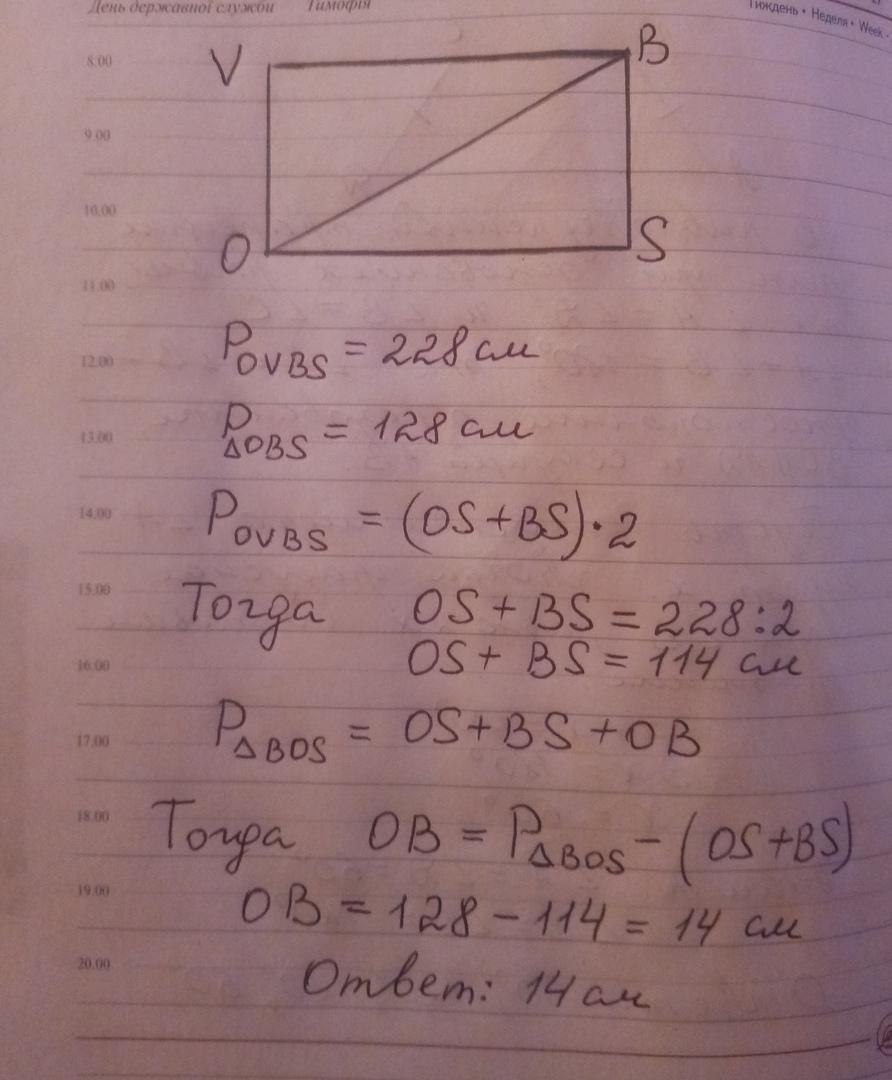 День державної служби Тимофія
Тиждень • Неделя • Week
V B
8.00
9.00
10.00
O S
11.00
P OVBS = 228 см
12.00
P ΔOBS = 128 см
13.00
14.00 P OVBS = (OS+BS)·2
15.00
Тогда OS + BS = 228:2
16.00 OS + BS = 114 см
17.00 P ΔBOS = OS+BS+OB
18.00
Тогда OB = P ΔBOS - (OS+BS)
19.00
OB = 128 - 114 = 14 см
20.00
Ответ: 14 см